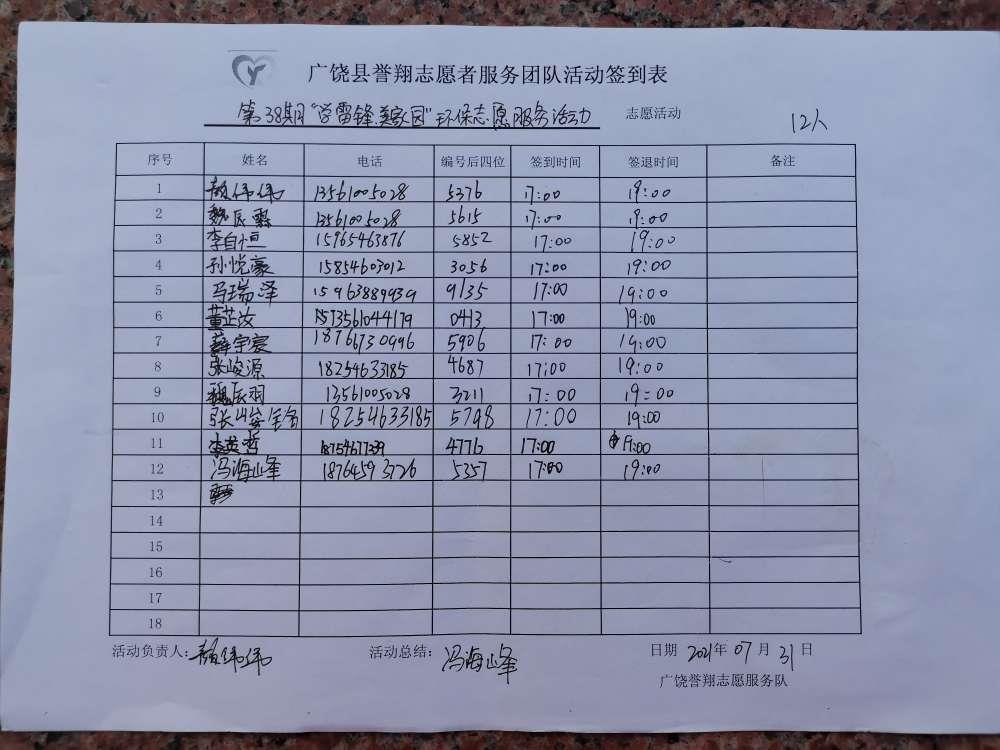 广饶县誉翔志愿者服务团队活动签到表
第38期"学雷锋.美家园"环保志愿服务活动 志愿活动 12人
序号 姓名 电话 编号后四位 签到时间 签退时间 备注
1 伟伟 13561005028 5376 17:00 19:00
2 魏辰 13561005028 5615 17:00 19:00
3 李自恒 15965463876 5852 17:00 19:00
4 孙悦豪 15854603012 3056 17:00 19:00
5 马瑞泽 15963889939 9135 17:00 19:00
6 董芷汝 0413 17:00 19:00
7 薛宇宸 18766730996 5906 17:00 19:00
8 张峻源 18254633185 4687 17:00 19:00
9 魏辰羽 13561005028 3211 17:00 19:00
10 张 18254633185 5798 17:00 19:00
11 李英哲 18754677339 4776 17:00 19:00
12 冯海峰 18764593726 5357 17:00 19:00
13
14
15
16
17
18
活动负责人: 伟伟 活动总结: 冯海峰 日期 2021年 07月 31日
广饶誉翔志愿服务队